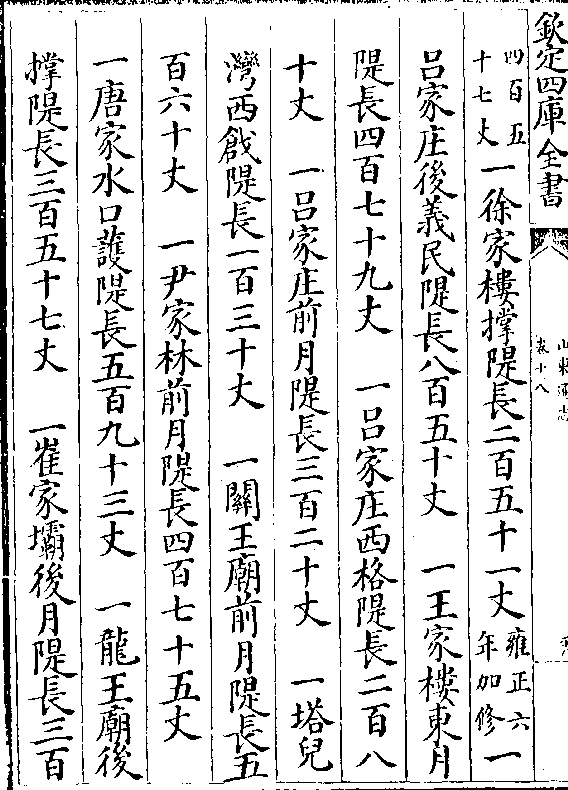 欽定四庫全書
山東通志
卷十八
四百五
十七丈
一徐家樓撑隄長二百五十一丈
雍正六
年加修
一
呂家庄後義民隄長八百五十丈　一王家樓東月
隄長四百七十九丈　一呂家庄西格隄長二百八
十丈　一呂家庄前月隄長三百二十丈　一塔兒
灣西戧隄長一百三十丈　一關王廟前月隄長五
百六十丈　一尹家林前月隄長四百七十五丈
一唐家水口護隄長五百九十三丈　一龍王廟後
撑隄長三百五十七丈　一崔家壩後月隄長三百